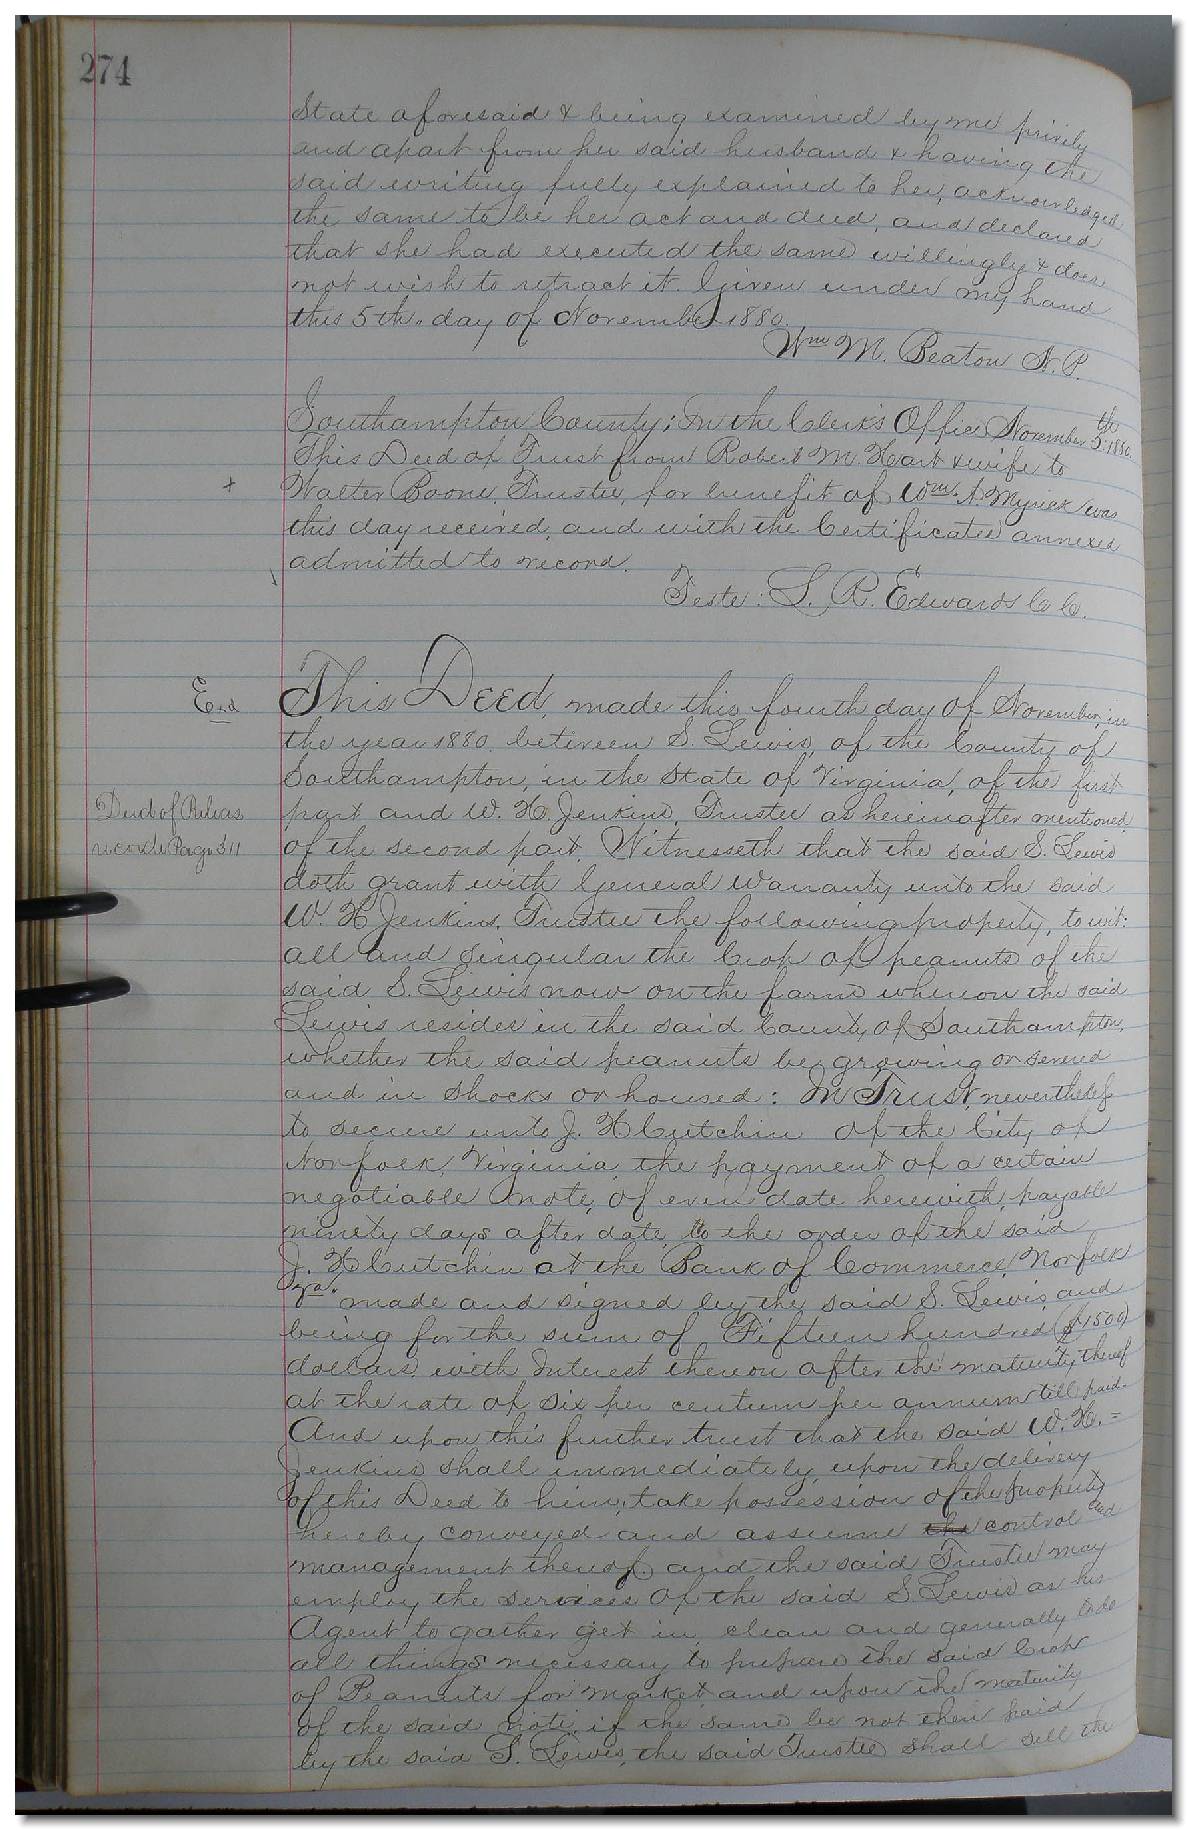 274
State aforesaid & being examined by me privily
and apart from her said husband & having the
said writing fully explained to her, acknowledged
the same to be her act and deed, and declared
that she had executed the same willingly & does
not wish to retract it. Given under my hand
this 5th. day of November 1880.
Wm M. Beaton N. P.
Southampton County; In the Clerk's Office November 5th. 1880.
This Deed of Trust from Robert M. Hart & wife to
Walter Boone, Trustee, for benefit of Wm. A. Myrick was
this day received, and with the Certificates annexed
admitted to record.
Teste: L. R. Edwards C. C.
Exd
This Deed, made this fourth day of November in
the year 1880. between S. Lewis, of the County of
Southampton, in the State of Virginia, of the first
Deed of Releas
part and W. H. Jenkins, Trustee as hereinafter mentioned,
Page 311
of the second part. Witnesseth that the said S. Lewis
doth grant with General Warranty unto the said
W. H Jenkins, Trustee the following property, to wit:
all and singular the Crop of peanuts of the
said S. Lewis now on the farm whereon the said
Lewis resides in the said County of Southampton,
whether the said peanuts be growing or severed
and in shocks or housed: In Trust, nevertheless
to secure unto J. H Cutchin of the City of
Norfolk, Virginia, the payment of a certain
negotiable note, of even date herewith, payable
ninety days after date, to the order of the said
J. H Cutchin at the Bank of Commerce, Norfolk
Va. made and signed by the said S. Lewis, and
being for the sum of Fifteen hundred ($1500)
dollars, with Interest thereon after the maturity thereof
at the rate of six per centum per annum till paid.
And upon this further trust that the said W. H. =
Jenkins shall immediately, upon the delivery
of this Deed to him, take possession of the property
hereby conveyed and assume the control and
management thereof, and the said Trustee may
employ the services of the said S. Lewis as his
Agent to gather get in, clean and generally to do
all things necessary to prepare the said Crop
of Peanuts for market, and upon the maturity
of the said note, if the same be not then paid
by the said S. Lewis, the said Trustee shall sell the